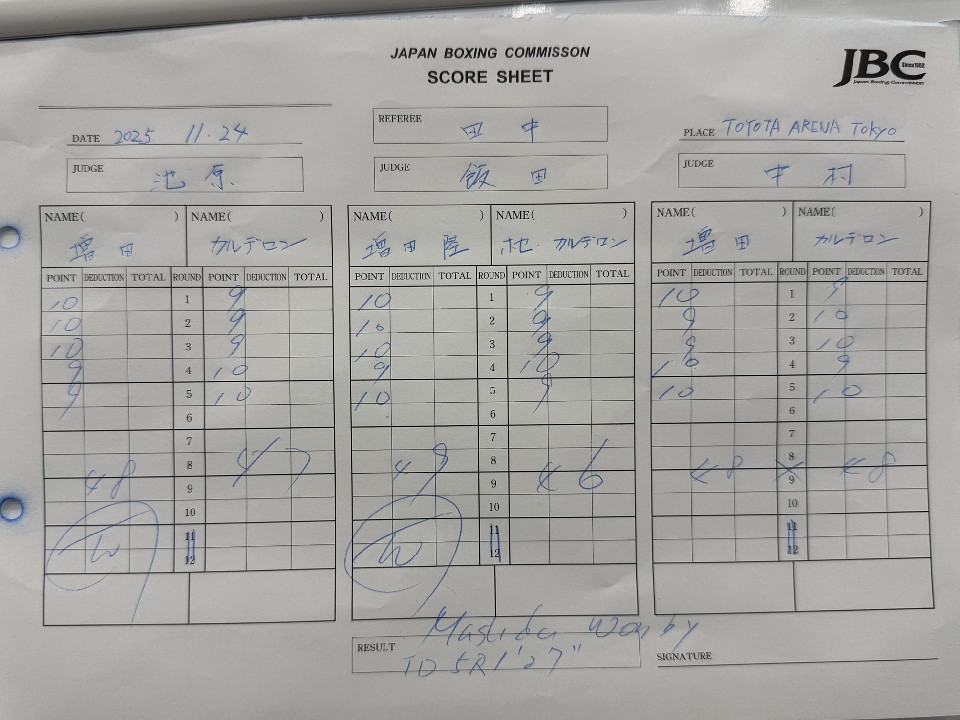 JAPAN BOXING COMMISSON
SCORE SHEET
JBC
Since1952
Japan Boxing Commission
DATE 2025 11.24
REFEREE 田中
PLACE TOYOTA ARENA Tokyo
JUDGE 池原
JUDGE 飯田
JUDGE 中村
NAME( ) NAME( ) NAME( ) NAME( ) NAME( ) NAME( )
増田 カルデロン 増田陸 ホセ・カルデロン 増田 カルデロン
POINT DEDUCTION TOTAL ROUND POINT DEDUCTION TOTAL POINT DEDUCTION TOTAL ROUND POINT DEDUCTION TOTAL POINT DEDUCTION TOTAL ROUND POINT DEDUCTION TOTAL
10 1 9 10 1 9 10 1 9
10 2 9 10 2 9 9 2 10
10 3 9 10 3 9 9 3 10
9 4 10 9 4 10 10 4 9
9 5 10 10 5 9 10 5 10
6 6 6
7 7 7
8 8 8
48 47 49 46 48 × 48
9 9 9
10 10 10
11 11 11
W W
12 12 12
RESULT Masuda Won by
TD 5R 1'27"
SIGNATURE